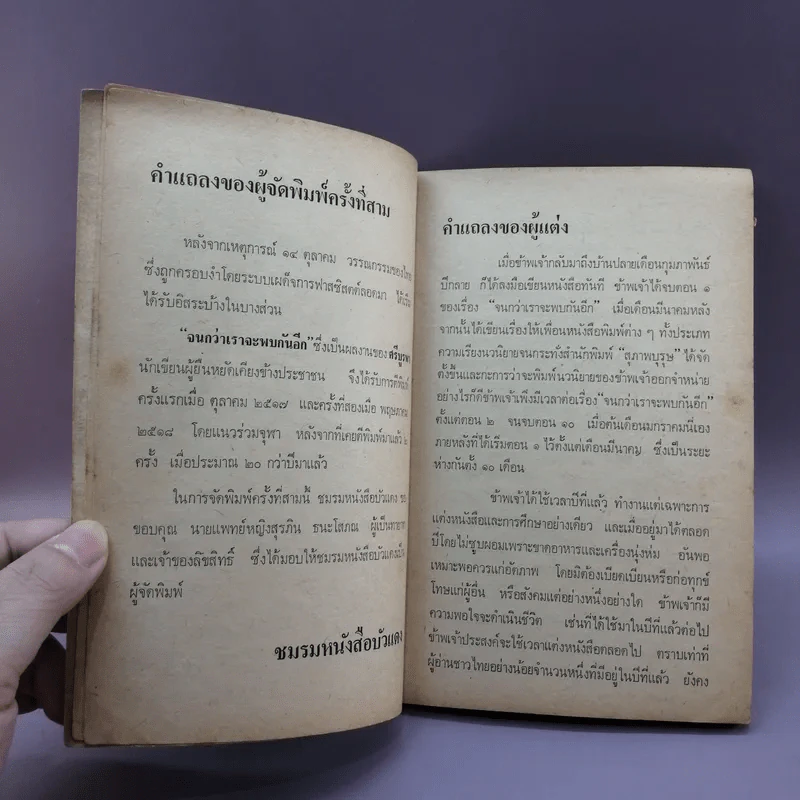 คำแถลงของผู้จัดพิมพ์ครั้งที่สาม
หลังจากเหตุการณ์ ๑๔ ตุลาคม วรรณกรรมของไทย
ซึ่งถูกครอบงำโดยระบบเผด็จการฟาสซิสต์ตลอดมา ได้เริ่ม
ได้รับอิสระบ้างในบางส่วน
"จนกว่าเราจะพบกันอีก" ซึ่งเป็นผลงานของ ศรีบูรพา
นักเขียนผู้ยืนหยัดเคียงข้างประชาชน จึงได้รับการตีพิมพ์
ครั้งแรกเมื่อ ตุลาคม ๒๕๑๗ และครั้งที่สองเมื่อ พฤษภาคม
๒๕๑๘ โดยแนวร่วมจุฬา หลังจากที่เคยตีพิมพ์มาแล้ว ๒
ครั้ง เมื่อประมาณ ๒๐ กว่าปีมาแล้ว
ในการจัดพิมพ์ครั้งที่สามนี้ ชมรมหนังสือบัวแดง ขอ
ขอบคุณ นายแพทย์หญิงสุรภิน ธนะโสภณ ผู้เป็นทายาท
และเจ้าของลิขสิทธิ์ ซึ่งได้มอบให้ชมรมหนังสือบัวแดงเป็น
ผู้จัดพิมพ์
ชมรมหนังสือบัวแดง
คำแถลงของผู้แต่ง
เมื่อข้าพเจ้ากลับมาถึงบ้านปลายเดือนกุมภาพันธ์
ปีกลาย ก็ได้ลงมือเขียนหนังสือทันที ข้าพเจ้าได้จบตอน ๑
ของเรื่อง "จนกว่าเราจะพบกันอีก" เมื่อเดือนมีนาคมหลัง
จากนั้นได้เขียนเรื่องให้เพื่อนหนังสือพิมพ์ต่าง ๆ ทั้งประเภท
ความเรียงนวนิยายจนกระทั่งสำนักพิมพ์ "สุภาพบุรุษ" ได้จัด
ตั้งขึ้นและกะการว่าจะพิมพ์นวนิยายของข้าพเจ้าออกจำหน่าย
อย่างไรก็ดีข้าพเจ้าเพิ่งมีเวลาต่อเรื่อง "จนกว่าเราจะพบกันอีก"
ตั้งแต่ตอน ๒ จนจบตอน ๑๐ เมื่อต้นเดือนมกราคมนี้เอง
ภายหลังที่ได้เริ่มตอน ๑ ไว้ตั้งแต่เดือนมีนาคม ซึ่งเป็นระยะ
ห่างกันตั้ง ๑๐ เดือน
ข้าพเจ้าได้ใช้เวลาปีที่แล้ว ทำงานแต่เฉพาะการ
แต่งหนังสือและการศึกษาอย่างเดียว และเมื่ออยู่มาได้ตลอด
ปีโดยไม่ซูบผอมเพราะขาดอาหารและเครื่องนุ่งห่ม อันพอ
เหมาะพอควรแก่อัตภาพ โดยมิต้องเบียดเบียนหรือก่อทุกข์
โทษแก่ผู้อื่น หรือสังคมแต่อย่างหนึ่งอย่างใด ข้าพเจ้าก็มี
ความพอใจจะดำเนินชีวิต เช่นที่ได้ใช้มาในปีที่แล้วต่อไป
ข้าพเจ้าประสงค์จะใช้เวลาแต่งหนังสือตลอดไป ตราบเท่าที่
ผู้อ่านชาวไทยอย่างน้อยจำนวนหนึ่งที่มีอยู่ในปีที่แล้ว ยังคง